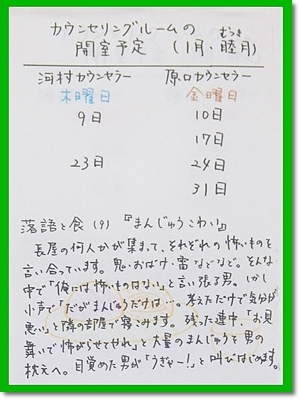 カウンセリングルームの
開室予定 (1月・睦月)
むつき
河村カウンセラー 原口カウンセラー
木曜日 金曜日
9日 10日
17日
23日 24日
31日
落語と食(9)『まんじゅうこわい』
長屋の何人かが集まって、それぞれの怖いものを
言い合っています。鬼・おばけ・雷などなど。そんな
中で「俺には怖いものはない」と言い張る男。しかし
小声で「だがまんじゅうだけは…。考えただけで気分が
悪い」と隣の部屋で寝こみます。残った連中、「お見
舞いで怖がらせてやれ」と大量のまんじゅうを男の
枕元へ。目覚めた男が「うぎゃー!」と叫びはじめます。